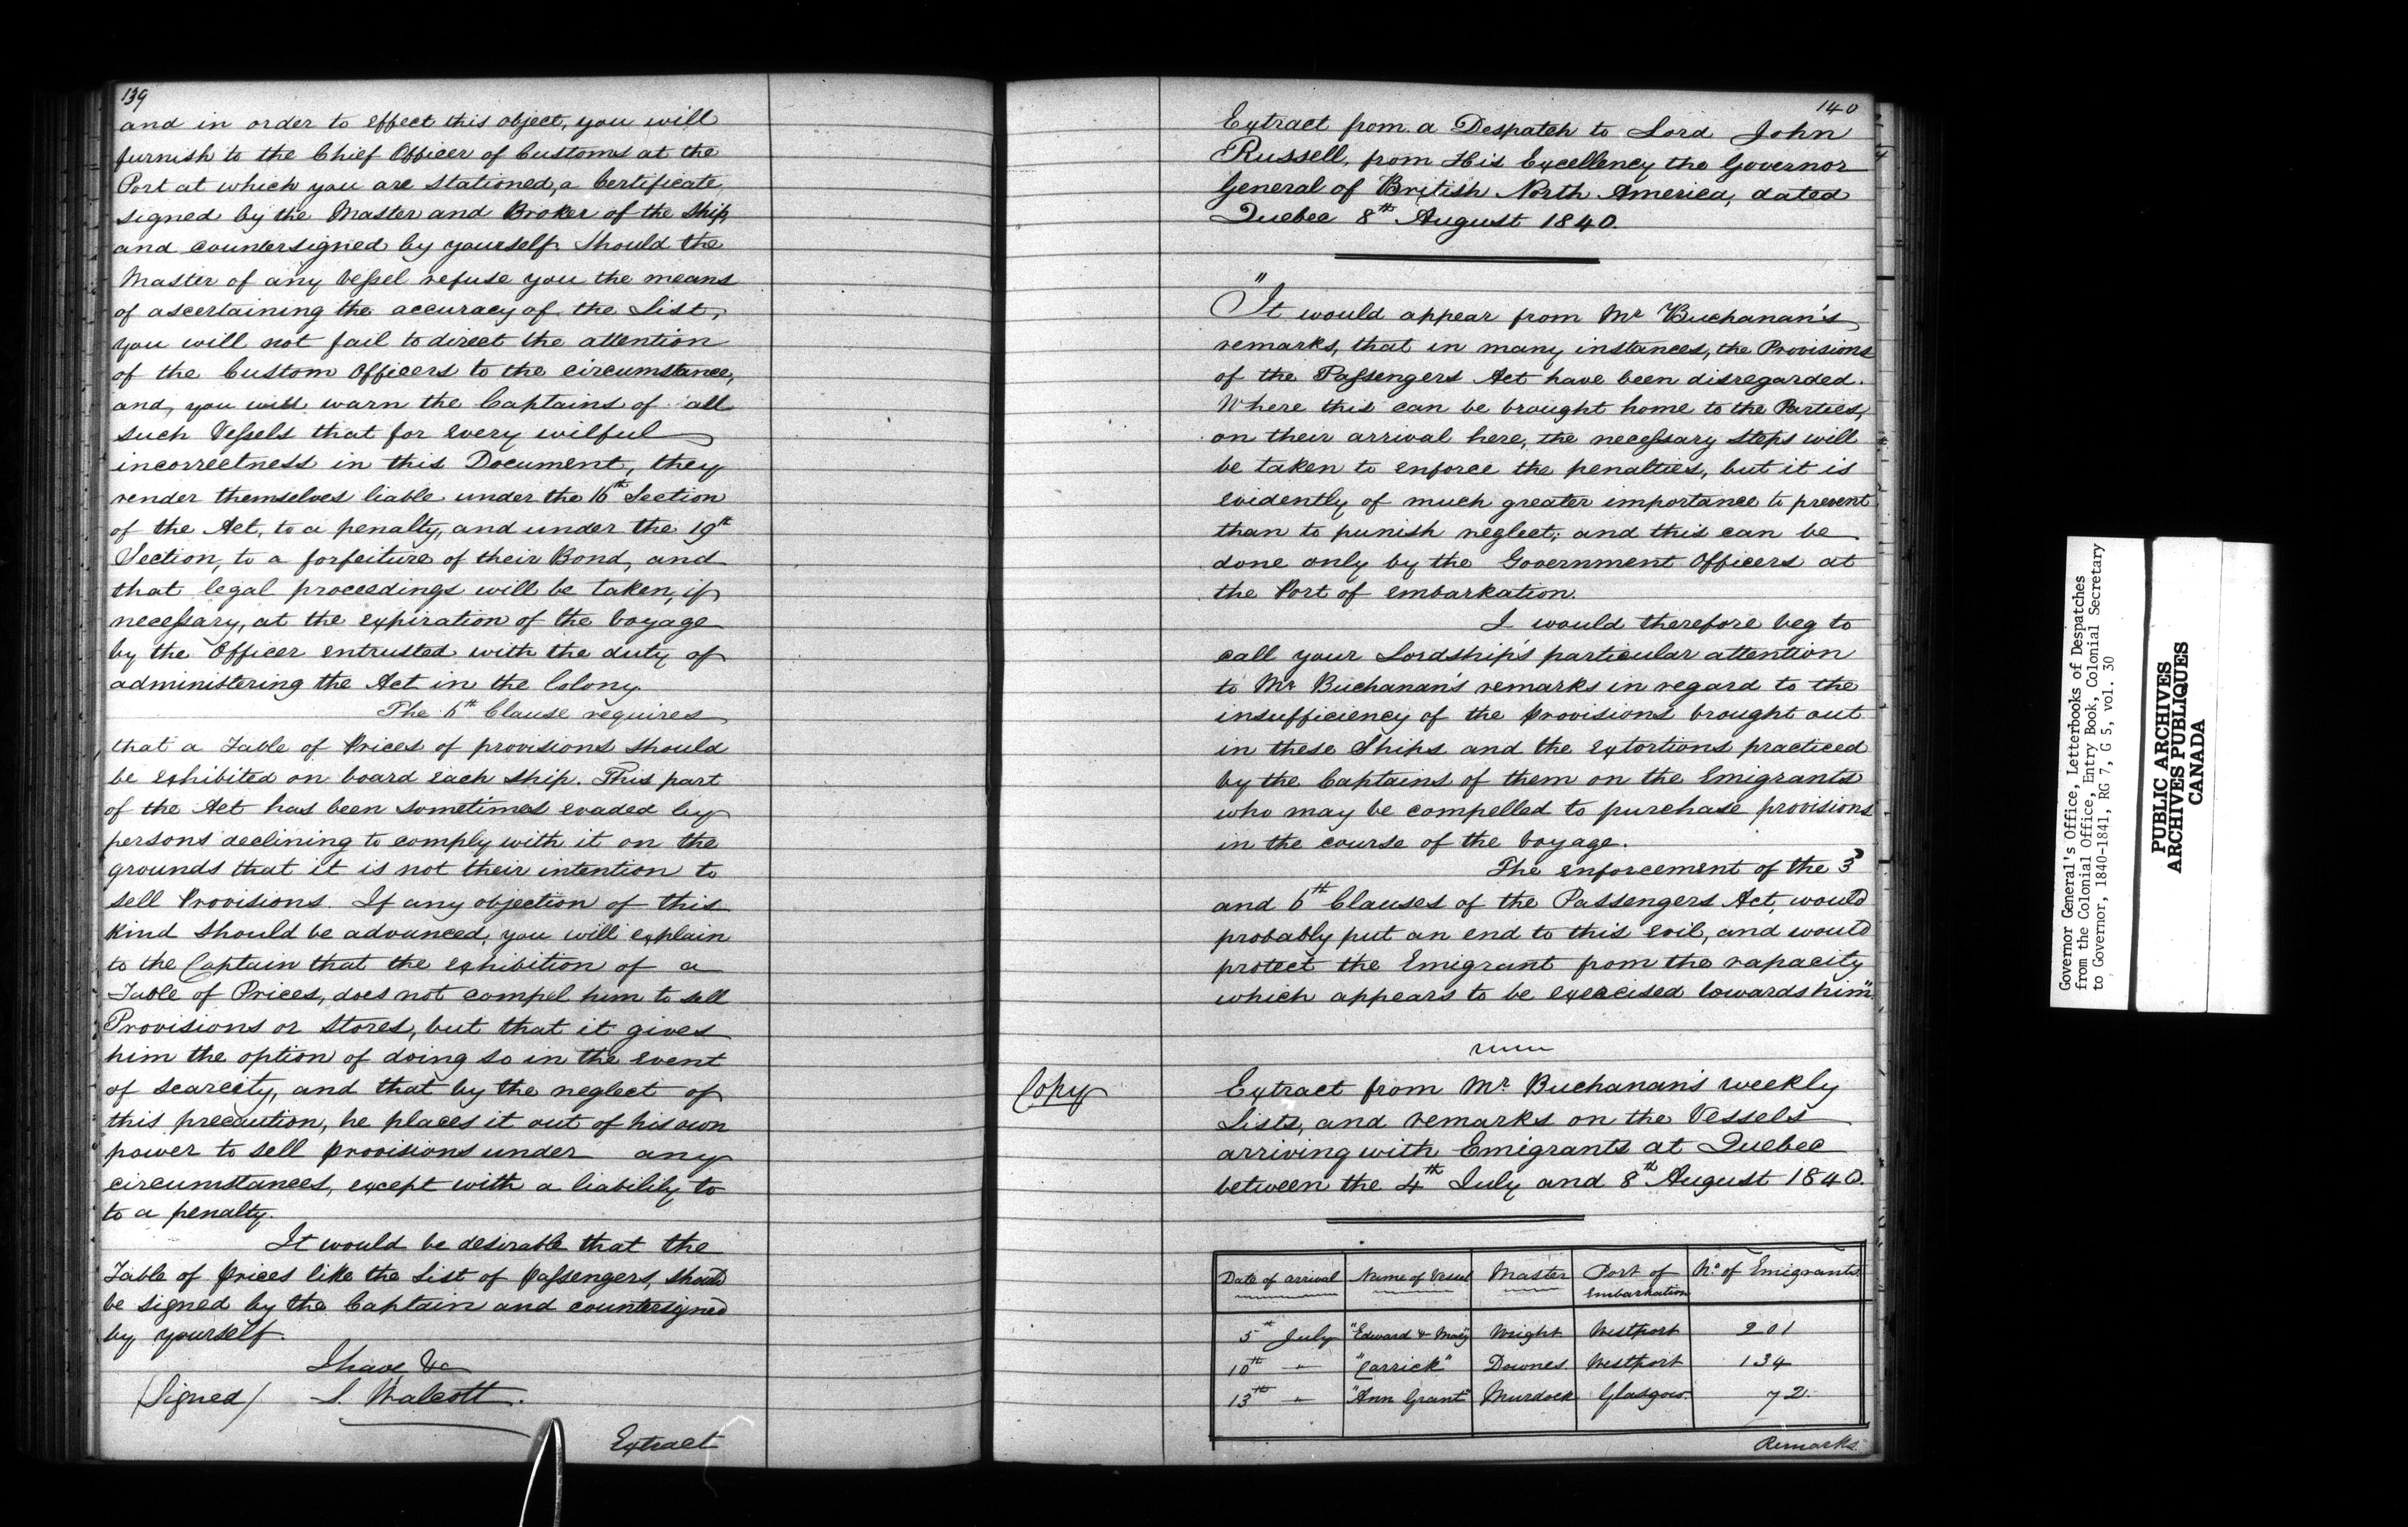 139
and in order to effect this object, you will
furnish to the Chief Officer of Customs at the
Port at which you are stationed, a Certificate,
signed by the Master and Broker of the Ship,
and countersigned by yourself. Should the
Master of any Vessel refuse you the means
of ascertaining the accuracy of the List,
you will not fail to direct the attention
of the Custom Officers to the circumstance,
and, you will warn the Captains of all
such Vessels that for every wilful
incorrectness in this Document, they
render themselves liable under the 16th Section
of the Act, to a penalty, and under the 19th
Section, to a forfeiture of their Bond, and
that legal proceedings will be taken, if
necessary, at the expiration of the voyage
by the Officer entrusted with the duty of
administering the Act in the Colony.
The 6th Clause requires
that a Table of Prices of provisions should
be exhibited on board each ship. This part
of the Act has been sometimes evaded by
persons declining to comply with it on the
grounds that it is not their intention to
sell Provisions. If any objection of this
kind should be advanced, you will explain
to the Captain that the exhibition of a
Table of Prices, does not compel him to sell
Provisions or Stores, but that it gives
him the option of doing so in the event
of scarcity, and that by the neglect of
this precaution, he places it out of his own
power to sell provisions under any
circumstances, except with a liability to
to a penalty.
It would be desirable that the
Table of prices like the List of passengers, should
be signed by the Captain and countersigned
by yourself.
I have &c
(Signed) S. Walcott.
Extract
140
Extract from a Despatch to Lord John
Russell, from His Excellency the Governor
General of British North America, dated
Quebec 8th August 1840.
"It would appear from Mr Buchanan's
remarks, that in many instances, the Provisions
of the Passengers Act have been disregarded.
Where this can be brought home to the Parties,
on their arrival here, the necessary steps will
be taken to enforce the penalties, but it is
evidently of much greater importance to prevent
than to punish neglect; and this can be
done only by the Government Officers at
the Port of embarkation.
I would therefore beg to
call your Lordship's particular attention
to Mr Buchanan's remarks in regard to the
insufficiency of the provisions brought out
in these Ships and the extortions practiced
by the Captains of them on the Emigrants
who may be compelled to purchase provisions
in the course of the voyage.
The enforcement of the 3d
and 6th Clauses of the Passengers Act, would
probably put an end to this evil, and would
protect the Emigrant from the rapacity
which appears to be exercised towards him".
Copy
Extract from Mr. Buchanan's weekly
Lists, and remarks on the Vessels
arriving with Emigrants at Quebec
between the 4th July and 8th August 1840.
Date of arrival Name of Vessel Master Port of embarkation No. of Emigrants
5th July "Edward & Mary" Wright Westport 201
10th " "Carrick" Downes Westport 134
13th " "Ann Grant" Murdock Glasgow 72.
Remarks
Governor General's Office, Letterbooks of Despatches
from the Colonial Office, Entry Book, Colonial Secretary
to Governor, 1840-1841, RG 7, G 5, vol. 30
PUBLIC ARCHIVES
ARCHIVES PUBLIQUES
CANADA